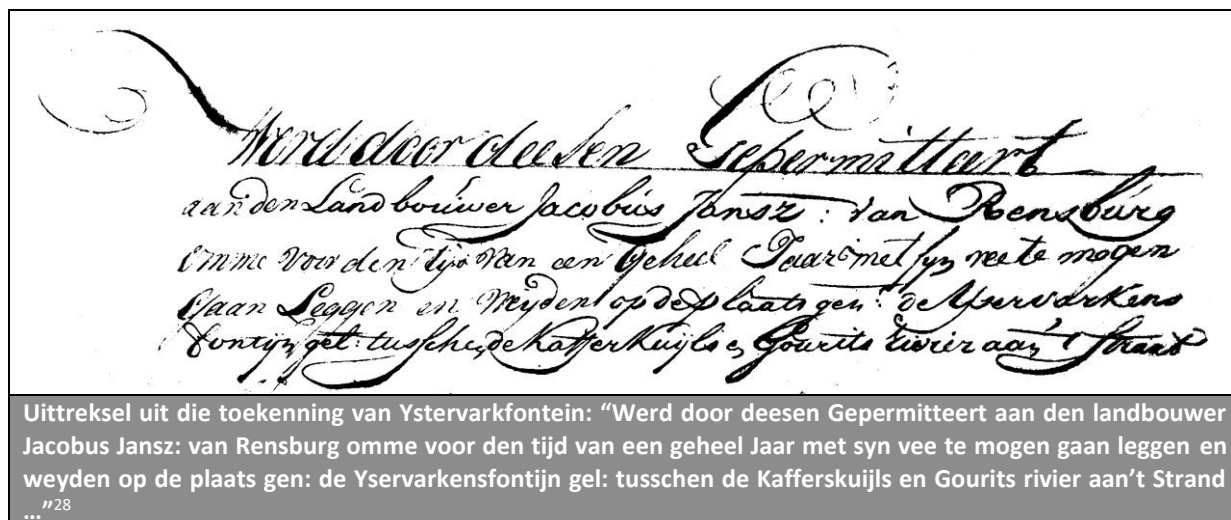 Werd door deesen Gepermitteert
aan den Landbouwer Jacobus Jansz: van Rensburg
omme voor den tijd van een Geheel Jaar met syn vee te mogen
Gaan Leggen en Weyden op de plaats gen: de Yservarkens
fontijn gel: tusschen de Kafferkuijls en Gourits rivier aan't Strand
Uittreksel uit die toekenning van Ystervarkfontein: “Werd door deesen Gepermitteert aan den landbouwer
Jacobus Jansz: van Rensburg omme voor den tijd van een geheel Jaar met syn vee te mogen gaan leggen en
weyden op de plaats gen: de Yservarkensfontijn gel: tusschen de Kafferskuijls en Gourits rivier aan’t Strand
...”28